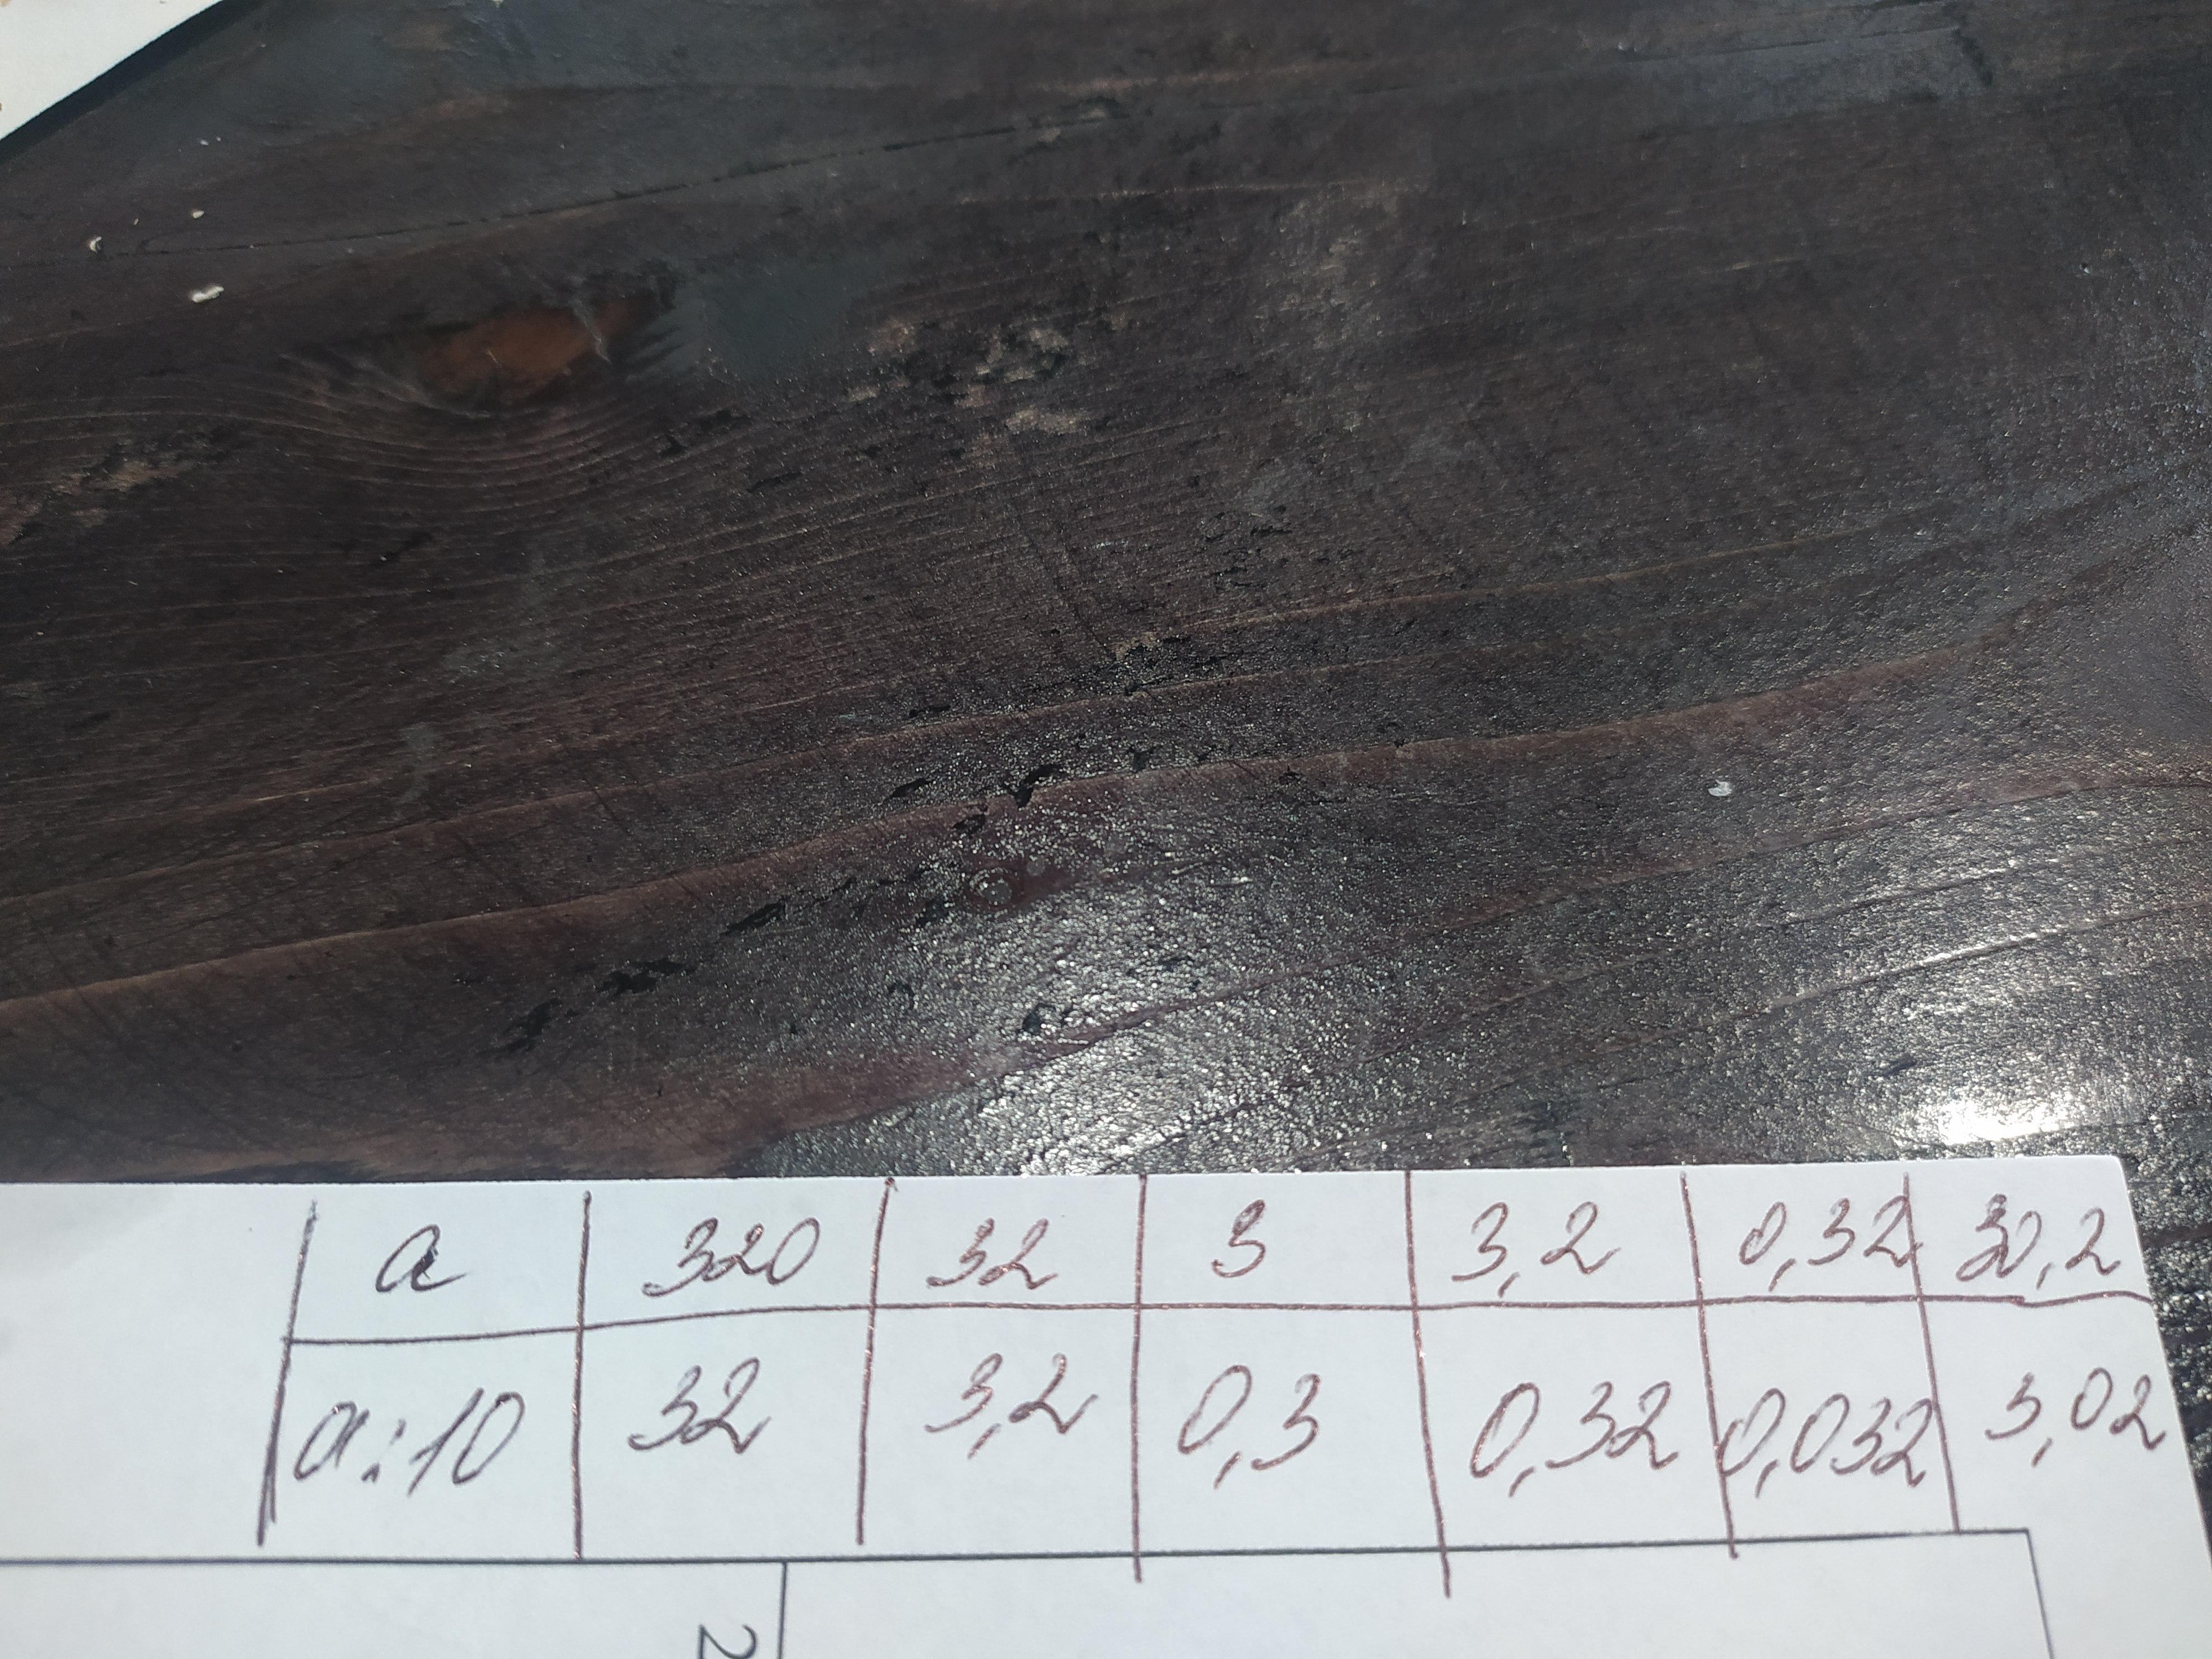 a 320 32 3 3,2 0,32 30,2
a:10 32 3,2 0,3 0,32 0,032 3,02
2